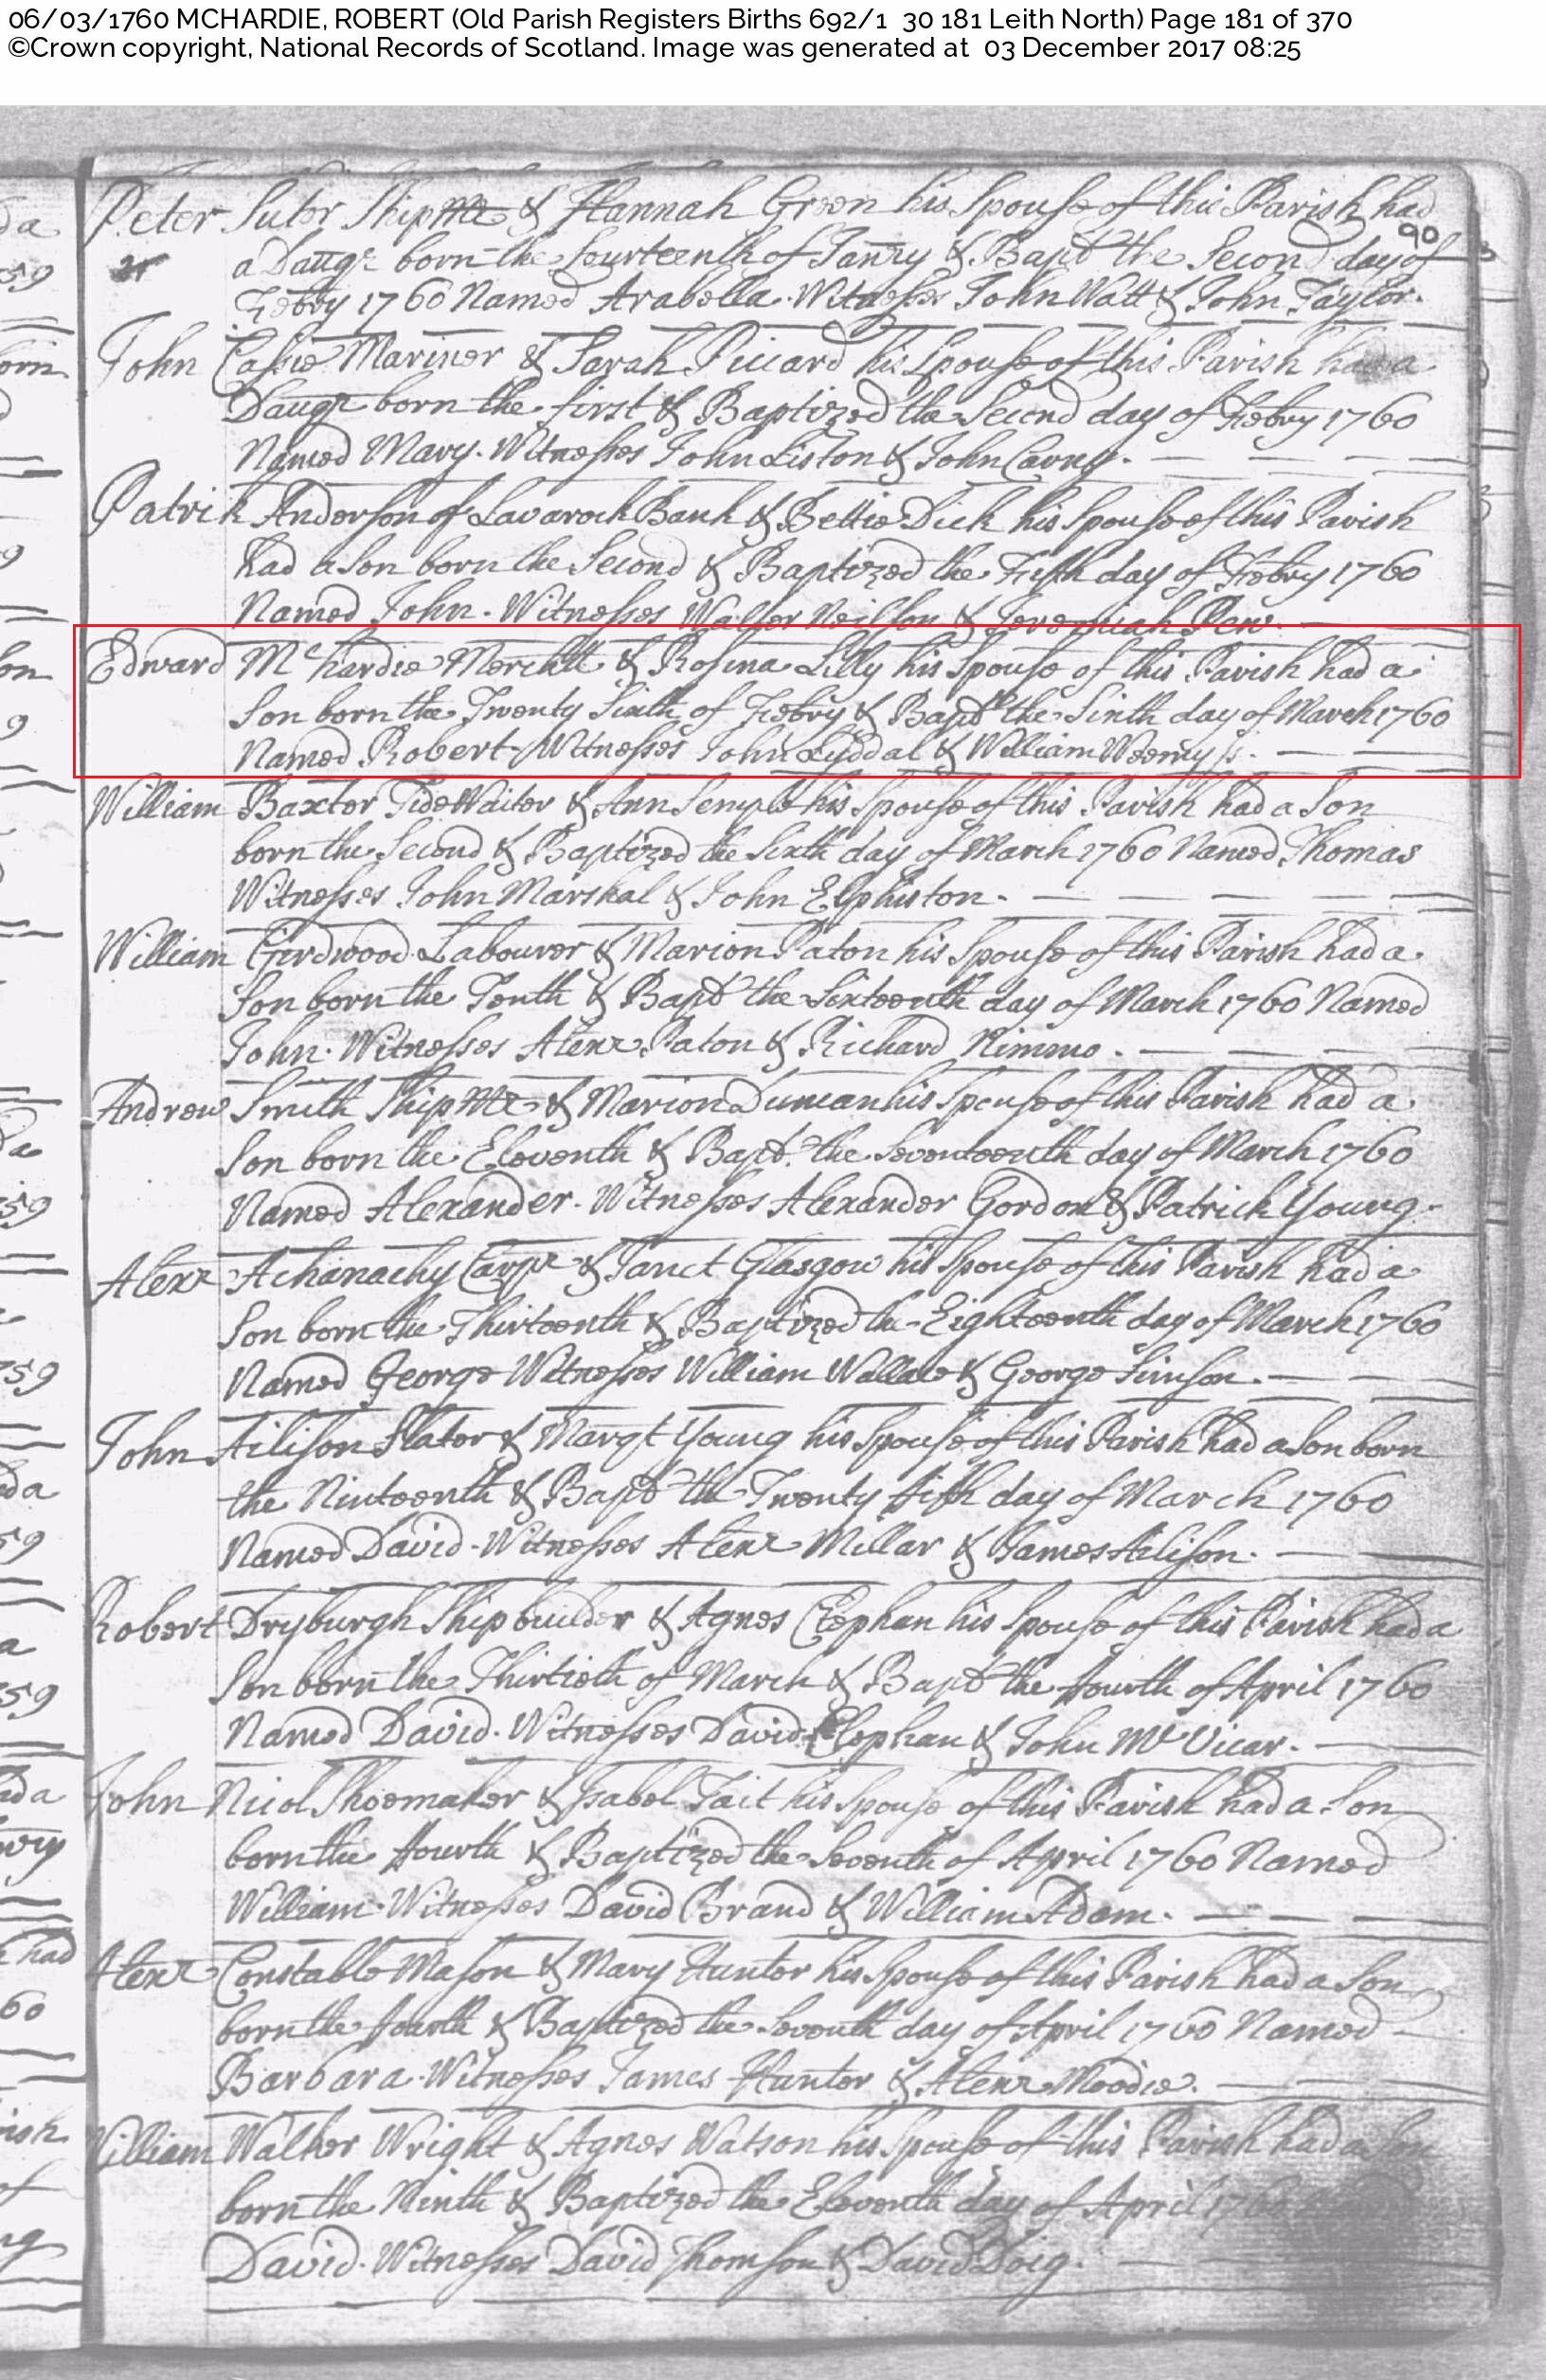 06/03/1760 MCHARDIE, ROBERT (Old Parish Registers Births 692/1 30 181 Leith North) Page 181 of 370
©Crown copyright, National Records of Scotland. Image was generated at 03 December 2017 08:25
Peter Sutor Shipmr & Hannah Green his Spouse of this Parish had
90
a Daugr born the fourteenth of Janry & Bapt the Second day of
Febry 1760 Named Arabella. Witnesses John Watt & John Taylor.
John Cassie Mariner & Sarah Piccard his Spouse of this Parish had a
Daugr born the first & Baptized the Second day of Febry 1760
Named Mary. Witnesses John Liston & John
Patrik Anderson of Lavarock Bank & Bettie Dick his Spouse of this Parish
had a Son born the Second & Baptized the Fifth day of Febry 1760
Named John. Witnesses Walter Neilson & Jeremiah
Edward Mchardie Merchtt & Rosina Lilly his Spouse of this Parish had a
Son born the Twenty Sixth of Febry & Bapt the Sixth day of March 1760
Named Robert Witnesses John Lyddal & William Weemyss.
William Baxter Tide Waiter & Ann Semple his Spouse of this Parish had a Son
born the Second & Baptized the Sixth day of March 1760 Named Thomas
Witnesses John Marshal & John Elphiston.
William Girdwood Labourer & Marion Paton his Spouse of this Parish had a
Son born the Tenth & Bapt the Sixteenth day of March 1760 Named
John. Witnesses Alexr Paton & Richard Nimmo.
Andrew Smith Shipmr & Marion Duncan his Spouse of this Parish had a
Son born the Eleventh & Bapt. the Seventeenth day of March 1760
Named Alexander. Witnesses Alexander Gordon & Patrick Young.
Alexr Achanachy Carpr & Janet Glasgow his Spouse of this Parish had a
Son born the Thirteenth & Baptized the Eighteenth day of March 1760
Named George Witnesses William Wallace & George Simson.
John Ailison Slater & Margt Young his Spouse of this Parish had a Son born
the Ninteenth & Bapt the Twenty fifth day of March 1760
Named David. Witnesses Alexr Millar & James Ailison.
Robert Dryburgh Shipbuilder & Agnes Clephan his Spouse of this Parish had a
Son born the Thirtieth of March & Bapt the fourth of April 1760
Named David. Witnesses David Clephan & John McVicar.
John Nicol Shoemaker & Isabel Tait his Spouse of this Parish had a Son
born the fourth & Baptized the Seventh of April 1760 Named
William. Witnesses David Brand & William Adam.
Alexr Constable Mason & Mary Hunter his Spouse of this Parish had a Son
born the fourth & Baptized the Seventh day of April 1760 Named
Barbara. Witnesses James Hunter & Alexr Moodie.
William Walker Wright & Agnes Watson his Spouse of this Parish had a Son
born the Ninth & Baptized the Eleventh day of April 1760
David. Witnesses David Thomson & David Doig.